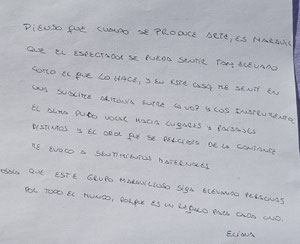 PIENSO QUE CUANDO SE PRODUCE ARTE, ES MARAVILL
QUE EL ESPECTADOR SE PUEDA SENTIR TAN ELEVADO
COMO EL QUE LO HACE, Y EN ESTE CASO ME SENTÍ EN
UNA SUBLIME ARMONÍA ENTRE LA VOZ Y LOS INSTRUMENTOS
EL ALMA PUDO VOLAR HACIA LUGARES Y PAISAJES
DISTINTOS Y EL AMOR QUE SE PERCIBÍA DE LA CANTANTE
ME EVOCÓ A SENTIMIENTOS MATERNALES
QUE ESTE GRUPO MARAVILLOSO SIGA ELEVANDO PERSONAS
POR TODO EL MUNDO, PORQUE ES UN REGALO PARA CADA UNO.
ELIANA